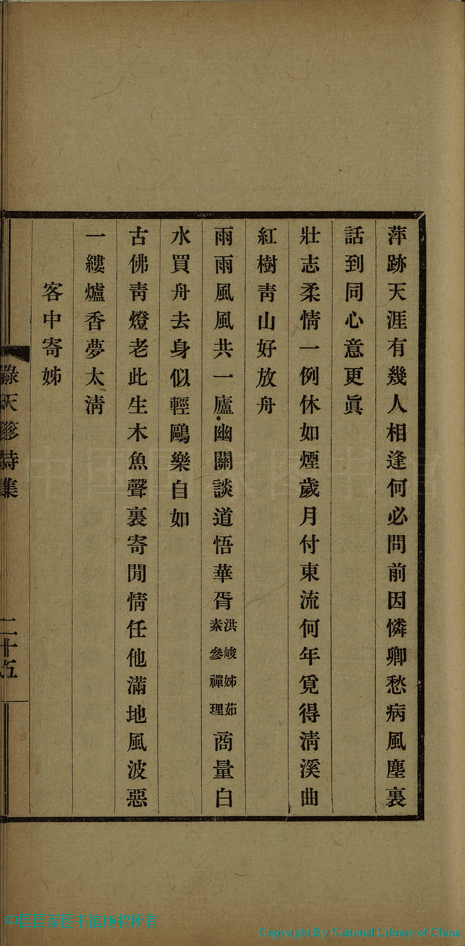 萍跡天涯有幾人相逢何必問前因憐卿愁病風塵裏
話到同心意更眞
壯志柔情一例休如煙歲月付東流何年覓得淸溪曲
紅樹靑山好放舟
雨雨風風共一廬幽關談道悟華胥洪峻姊茹素參禪理商量白
水買舟去身似輕鷗樂自如
古佛靑燈老此生木魚聲裏寄閒情任他滿地風波惡
一縷爐香夢太淸
客中寄姊
天影詩集
二十五
Copyright By National Library of China